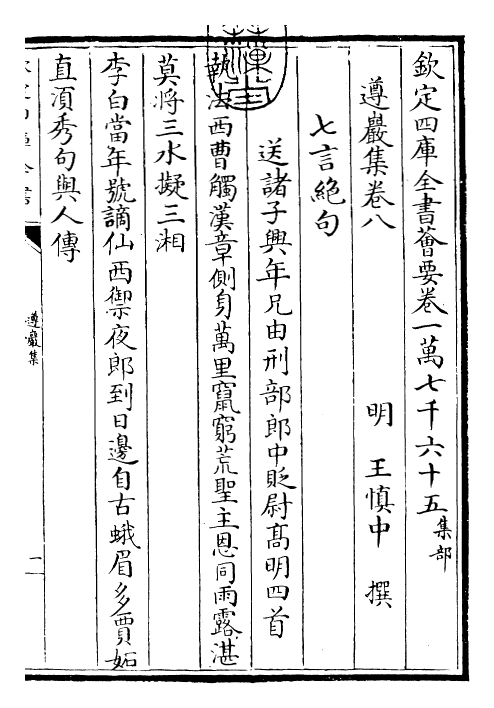 欽定四庫全書薈要卷一萬七千六十五集部
遵巖集卷八　明　王慎中　撰
七言絕句
送諸子興年兄由刑部郎中貶尉髙明四首
執法西曹觸漢章側身萬里竄窮荒聖主恩同雨露湛
莫將三水擬三湘
李白當年號謫仙西禦夜郎到日邊自古蛾眉多賈妬
直湏秀句與人傳
遵巖集